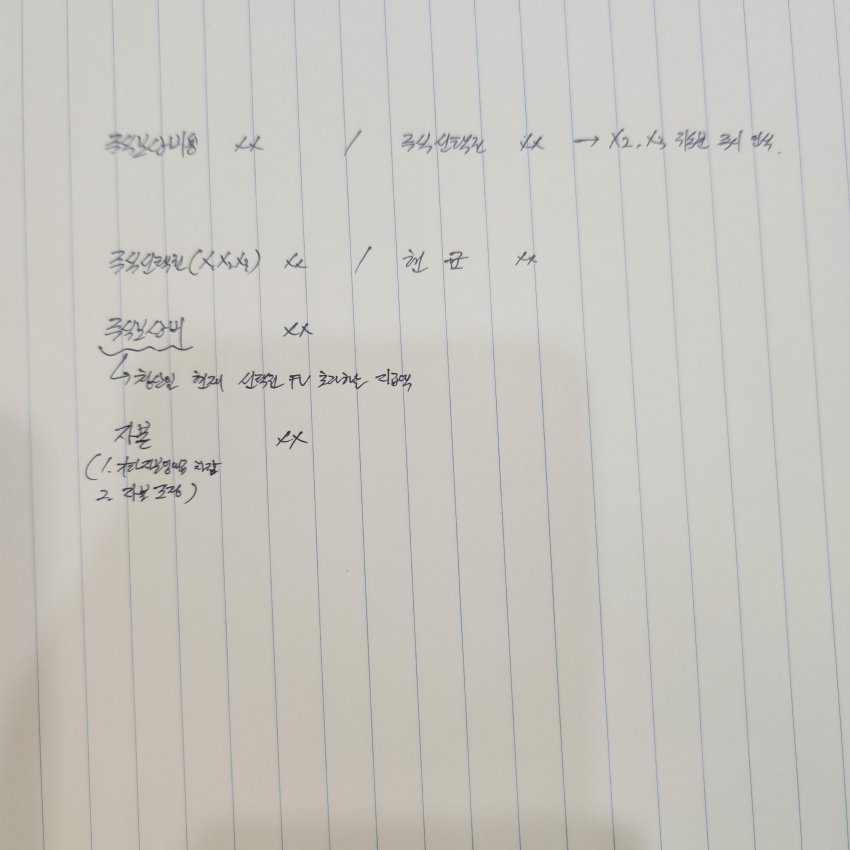 주식보상비용 xx / 주식선택권 xx → X2, X3 취소분 즉시 인식.
주식선택권(X1X2X3) xx / 현금 xx
주식보상비 xx
↳ 청산일 현재 선택권 FV 초과하는 지급액
자본 xx
(1. 자본 차감
2. 자본조정)